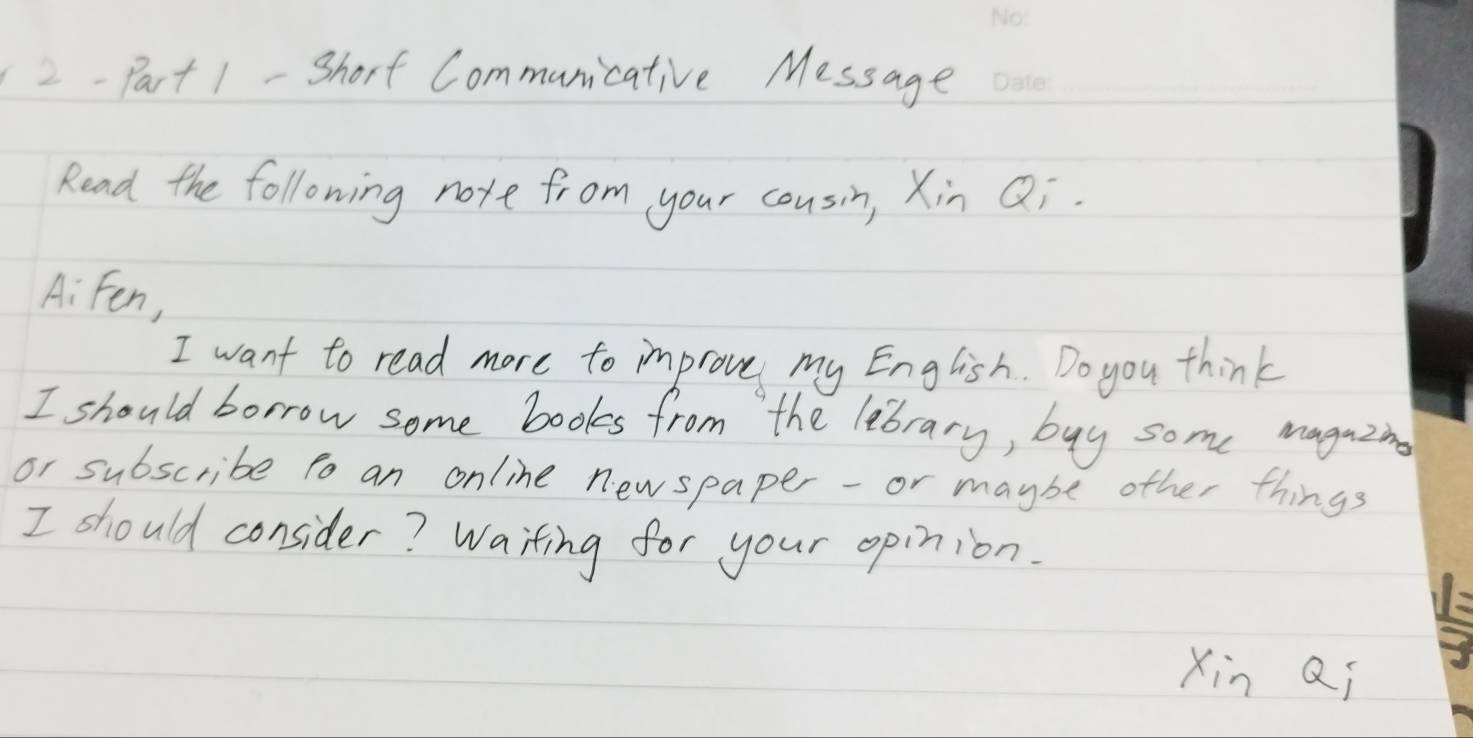 No:
2 - Part 1 - Short Communicative Message
Date:
Read the following note from your cousin, Xin Qi.
Ai Fen,
I want to read more to improve my English. Do you think
I should borrow some books from the library, buy some magazine
or subscribe to an online newspaper - or maybe other things
I should consider? Waiting for your opinion.
Xin Qi